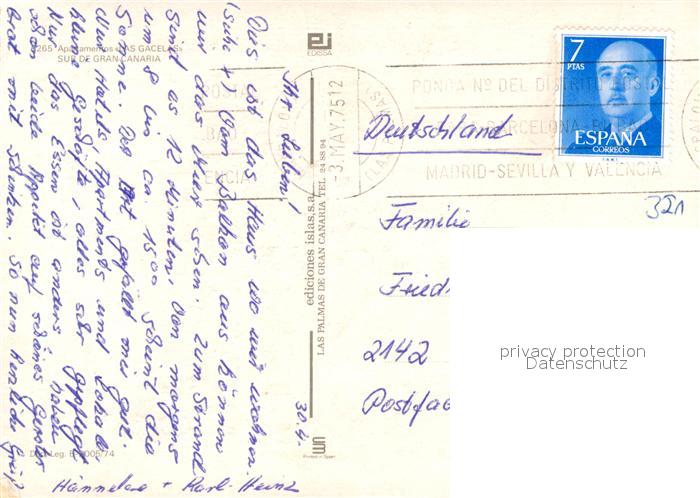 265 Apartamentos «LAS GACELAS»
SUR DE GRAN CANARIA
EDISSA
30.4.
Ihr Lieben!
Dis ist das Haus wo wir wohnen.
(siehe x) Vom Balkon aus können
wir das Meer sehen. Zum Strand
sind es 12 Minuten. Von morgens
um 8 bis ca. 1500 scheint die
Sonne. Der Ort gefällt mir gut.
Nur Hotels Apartments und Lokale
Blumen Geschäfte, alles sehr gepflegt
Nur das Essen ist anders, haben
schon beide Appetit auf schönes Grau
brot mit Schinken. So nun herzliche Grüße
Hannelore + Karl-Heinz
Dep. Leg. B. 5005/74
ediciones islas, s.a.
LAS PALMAS DE GRAN CANARIA TEL. 24 88 94
Printed in Spain
-3.MAY.75 12
LAS PALMAS
PONGA Nº DEL DISTRITO POSTAL
BARCELONA-BILBAO
MADRID-SEVILLA Y VALENCIA
7
PTAS
ESPAÑA
CORREOS
Deutschland
321
Familie
Fried
2142
Postfac
privacy protection
Datenschutz